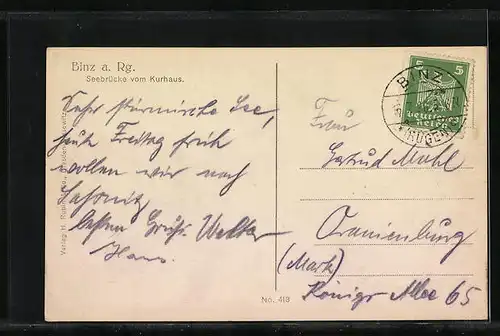 Binz a. Rg.
Seebrücke vom Kurhaus.
Sehr stürmische See,
heute Freitag früh
wollen wir nach
Sassnitz
besten Gruß. Walter
Hans.
Frau
Gertrud Muhl
Oranienburg
(Mark)
Königs Allee 65
No. 413
5 5
Deutsches
Reich
BINZ
(RÜGEN)
Verlag: H.